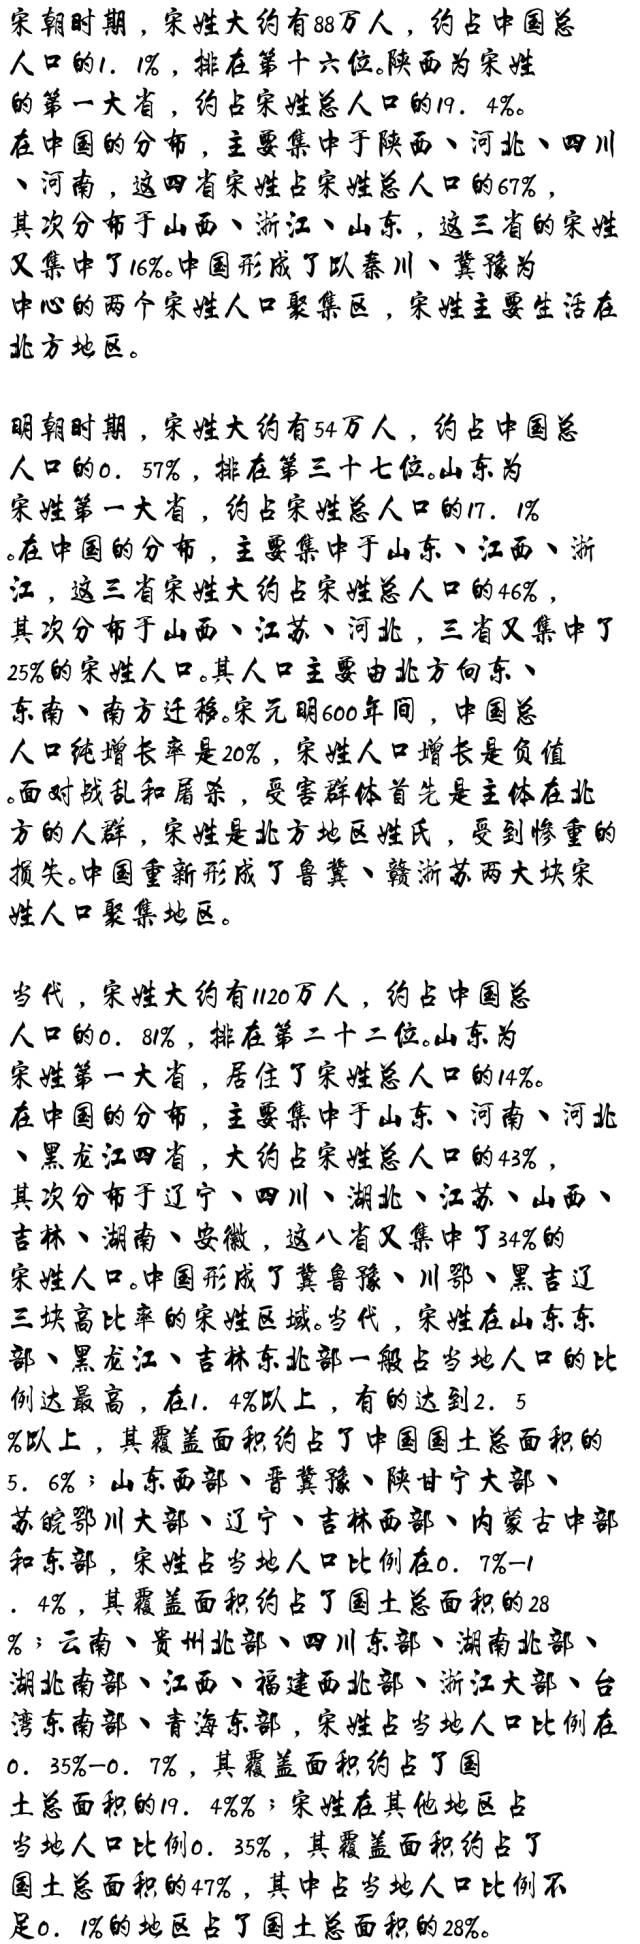 宋朝时期，宋姓大约有88万人，约占中国总
人口的1．1%，排在第十六位。陕西为宋姓
的第一大省，约占宋姓总人口的19．4%。
在中国的分布，主要集中于陕西、河北、四川
、河南，这四省宋姓占宋姓总人口的67%，
其次分布于山西、浙江、山东，这三省的宋姓
又集中了16%。中国形成了以秦川、冀豫为
中心的两个宋姓人口聚集区，宋姓主要生活在
北方地区。
明朝时期，宋姓大约有54万人，约占中国总
人口的0．57%，排在第三十七位。山东为
宋姓第一大省，约占宋姓总人口的17．1%
。在中国的分布，主要集中于山东、江西、浙
江，这三省宋姓大约占宋姓总人口的46%，
其次分布于山西、江苏、河北，三省又集中了
25%的宋姓人口。其人口主要由北方向东、
东南、南方迁移。宋元明600年间，中国总
人口纯增长率是20%，宋姓人口增长是负值
。面对战乱和屠杀，受害群体首先是主体在北
方的人群，宋姓是北方地区姓氏，受到惨重的
损失。中国重新形成了鲁冀、赣浙苏两大块宋
姓人口聚集地区。
当代，宋姓大约有1120万人，约占中国总
人口的0．81%，排在第二十二位。山东为
宋姓第一大省，居住了宋姓总人口的14%。
在中国的分布，主要集中于山东、河南、河北
、黑龙江四省，大约占宋姓总人口的43%，
其次分布于辽宁、四川、湖北、江苏、山西、
吉林、湖南、安徽，这八省又集中了34%的
宋姓人口。中国形成了冀鲁豫、川鄂、黑吉辽
三块高比率的宋姓区域。当代，宋姓在山东东
部、黑龙江、吉林东北部一般占当地人口的比
例达最高，在1．4%以上，有的达到2．5
%以上，其覆盖面积约占了中国国土总面积的
5．6%；山东西部、晋冀豫、陕甘宁大部、
苏皖鄂川大部、辽宁、吉林西部、内蒙古中部
和东部，宋姓占当地人口比例在0．7%—1
．4%，其覆盖面积约占了国土总面积的28
%；云南、贵州北部、四川东部、湖南北部、
湖北南部、江西、福建西北部、浙江大部、台
湾东南部、青海东部，宋姓占当地人口比例在
0．35%—0．7%，其覆盖面积约占了国
土总面积的19．4%%；宋姓在其他地区占
当地人口比例0．35%，其覆盖面积约占了
国土总面积的47%，其中占当地人口比例不
足0．1%的地区占了国土总面积的28%。